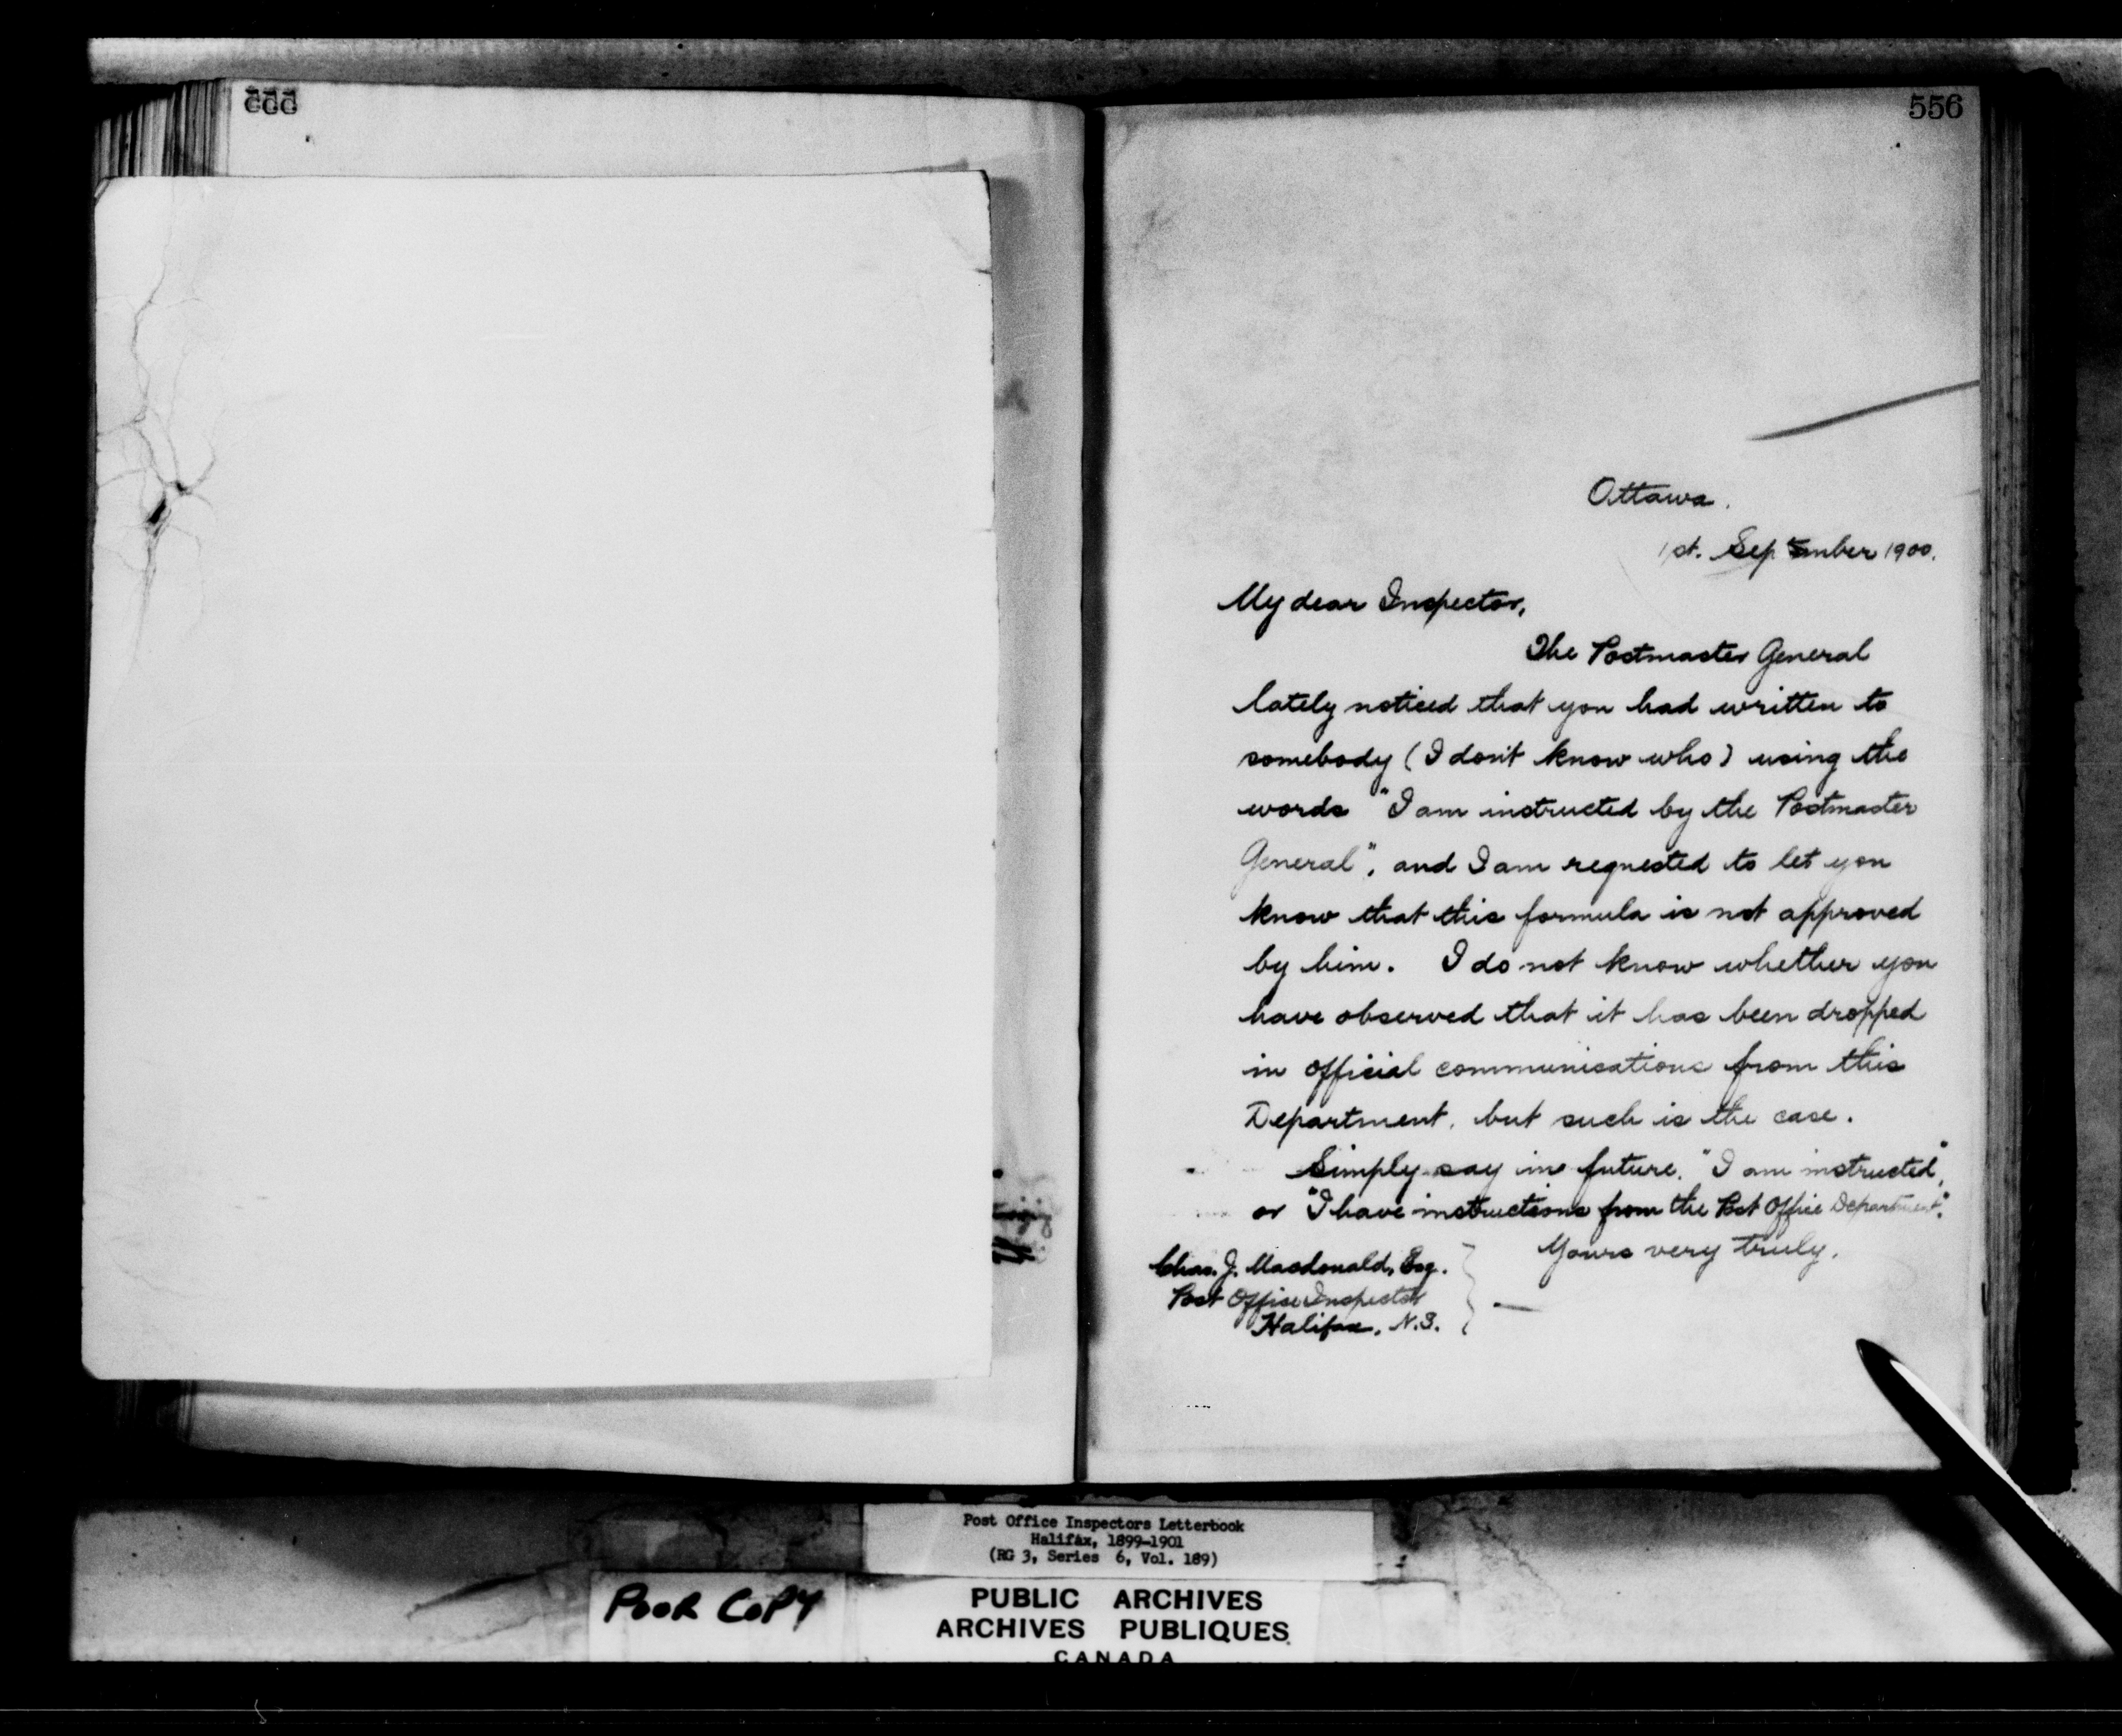 555
556
Ottawa.
1st. September 1900.
My dear Inspector,
The Postmaster General
lately noticed that you had written to
somebody (I don't know who) using the
words "I am instructed by the Postmaster
General", and I am requested to let you
know that this formula is not approved
by him. I do not know whether you
have observed that it has been dropped
in official communications from this
Department, but such is the case.
Simply say in future, "I am instructed",
or "I have instructions from the Post Office Department".
Yours very truly,
Chas. J. Macdonald, Esq.
Post Office Inspector
Halifax, N.S.
Post Office Inspectors Letterbook
Halifax, 1899-1901
(RG 3, Series 6, Vol. 189)
POOR COPY
PUBLIC ARCHIVES
ARCHIVES PUBLIQUES
CANADA